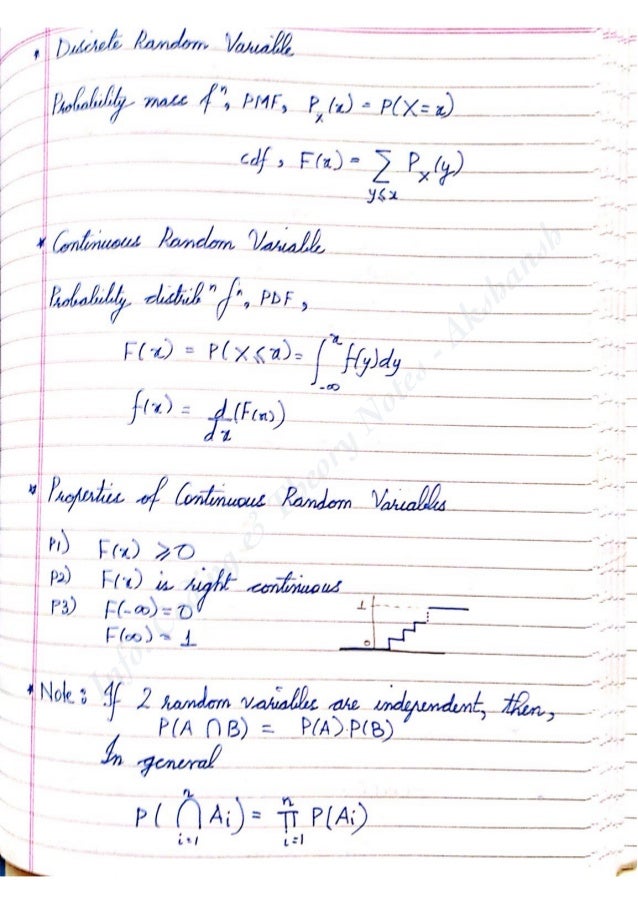 * Discrete Random Variable
Probability mass fⁿ, PMF, Pₓ(x) = P(X=x)
cdf, F(x) = ∑ Pₓ(y)
y≤x
* Continuous Random Variable
Probability distribⁿ fⁿ, PDF,
F(x) = P(X≤x) = ∫_{-∞}^{x} f(y)dy
f(x) = d/dx (F(x))
* Properties of Continuous Random Variables
P1) F(x) ≥ 0
P2) F(x) is right continuous
P3) F(-∞) = 0
F(∞) = 1
1
0
* Note: If 2 random variables are independent, then,
P(A ∩ B) = P(A).P(B)
In general
P(⋂_{i=1}^{n} Ai) = ∏_{i=1}^{n} P(Ai)
Info. Coding & Theory Notes - Aksbansh